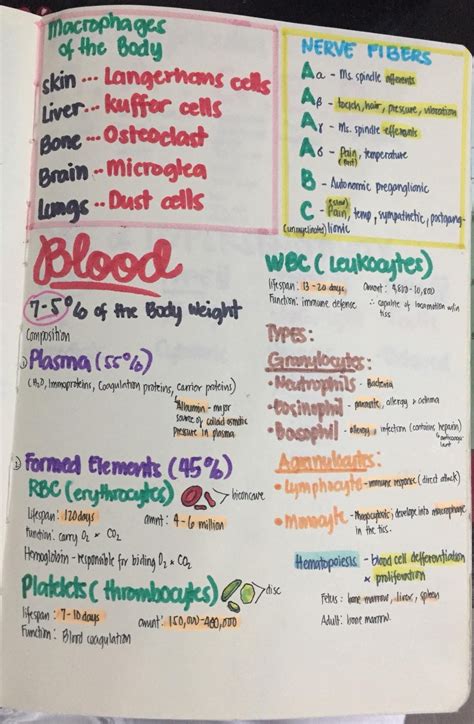 Macrophages
of the Body
Skin --- Langerhans cells
Liver --- kuffer cells
Bone --- Osteoclast
Brain --- Microglea
Lungs --- Dust cells
NERVE FIBERS
Aα - Ms. spindle afferents
Aβ - touch, hair, pressure, vibration
Aγ - Ms. spindle efferents
Aδ - Pain, temperature
(fast)
B - Autonomic preganglionic
(slow)
C - Pain, temp, sympathetic, postgang-
(unmyelinated) lionic
Blood
7-5% of the Body Weight
Composition
① Plasma (55%)
(H2O, Immoproteins, Coagulation proteins, Carrier proteins)
Albumin - major
source of colloid osmotic
pressure in plasma
② Formed Elements (45%)
RBC (erythrocytes) biconcave
lifespan: 120 days amnt: 4-6 million
Function: carry O2 & CO2
Hemoglobin - responsible for biding O2 & CO2
Platelets (thrombocytes) disc
lifespan: 7-10 days amount: 150,000-400,000
Function: Blood coagulation
WBC (Leukocytes)
lifespan: 13-20 days amount:
Function: immune defense ∴ capable of locomotion w/in
tiss
TYPES:
Granulocytes:
• Neutrophils - Bacteria
• Eosinophil - parasitic, allergy & edema
• Basophil - allergy, infection (contains heparin)
Agranulocytes:
• Lymphocyte - immune response (direct attack)
• Monocyte - Phagocytotic; develope into macrophage
in the tiss.
Hematopoiesis - blood cell defferentiation
& proliferation
Fetus: bone marrow, liver, spleen
Adult: bone marrow.